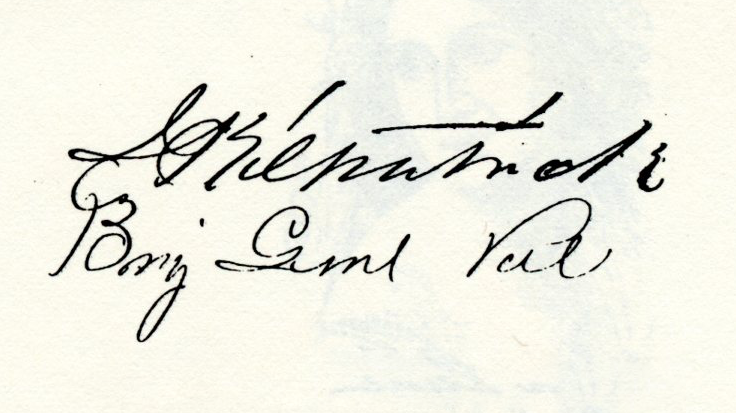 J Kilpatrick
Brig Genl Vol